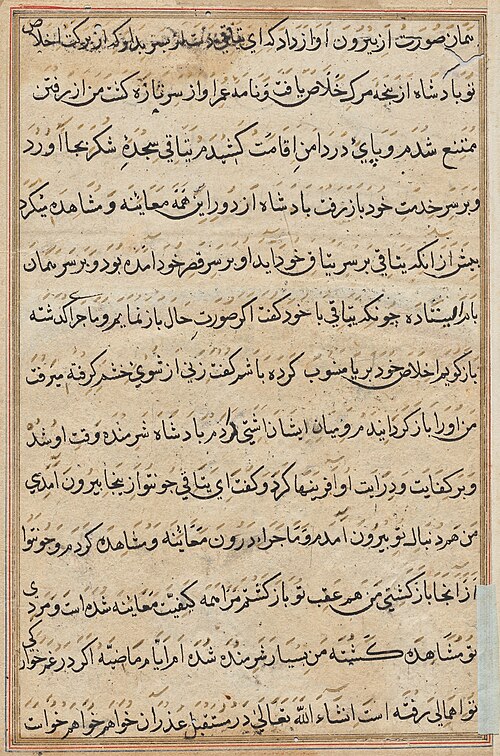 همان صورت از بیرون آواز داد که ای یتاقی دست از سر بدار که از برکت اخلاص
تو پادشاه از پنجه مرک خلاص یافت و نامه عمر او از سر تازه کشت من از رفتن
ممتنع شدم و پای در دامن اقامت کشیدم یتاقی سجدهٔ شکر بجا آورد
و بر سر خدمت خود باز رفت پادشاه از دور این همه معاینه و مشاهده میکرد
پیش از آنکه یتاقی بر سر یتاق خود آید او بر سر قصر خود آمده بود و بر سر همان
بام ایستاده چونکه یتاقی با خود کفت اکر صورت حال باز نمایم و ماجرای کذشته
باز کویم اخلاص خود بریا منسوب کرده باشم کفت زنی از شوی خشم کرفته میرفت
من او را باز کردانیدم و میان ایشان آشتی کردم پادشاه شرمنده وقت او شد
و بر کفایت و درایت او آفرینها کرد و کفت ای یتاقی چون تو از ینجا بیرون آمدی
من هم دنبال تو بیرون آمدم و ماجرا درون معاینه و مشاهده کردم و چون تو
از آنجا باز کشتی من هم عقب تو باز کشتم مرا همه کیفیت معاینه شده است و مردی
تو مشاهده کشته من بسیار شرمنده شده ام ایام ماضیه اکر در غمخوارکی
تو اهمالی رفته است انشاء الله تعالی در مستقبل عذر آن خواهم خواست